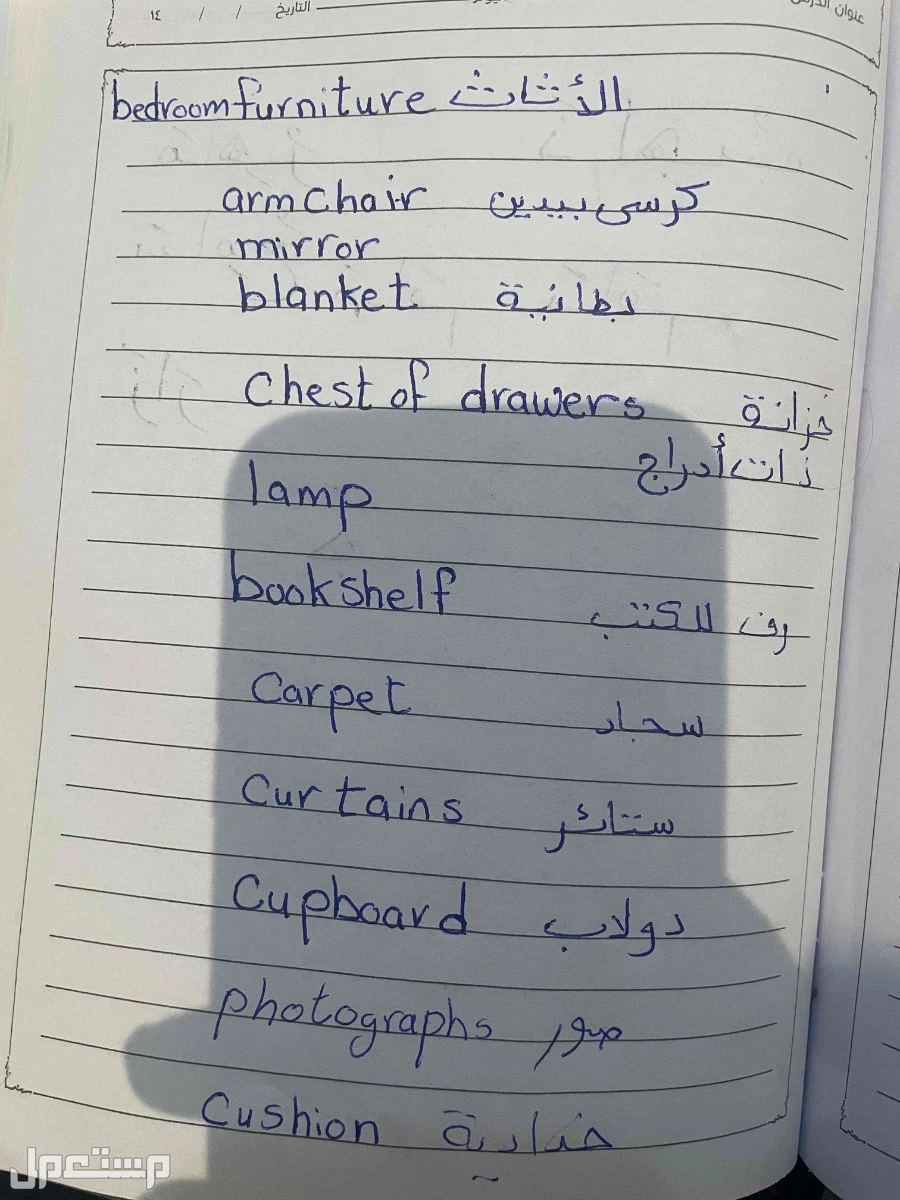 عنوان الدرس
التاريخ / / ١٤
bedroom furniture الأثاث
armchair كرسى بيدين
mirror
blanket بطانية
Chest of drawers خزانة
ذات أدراج
lamp
bookshelf رف للكتب
Carpet سجاد
Curtains ستائر
Cupboard دولاب
photographs صور
Cushion خدادية
مستعمل